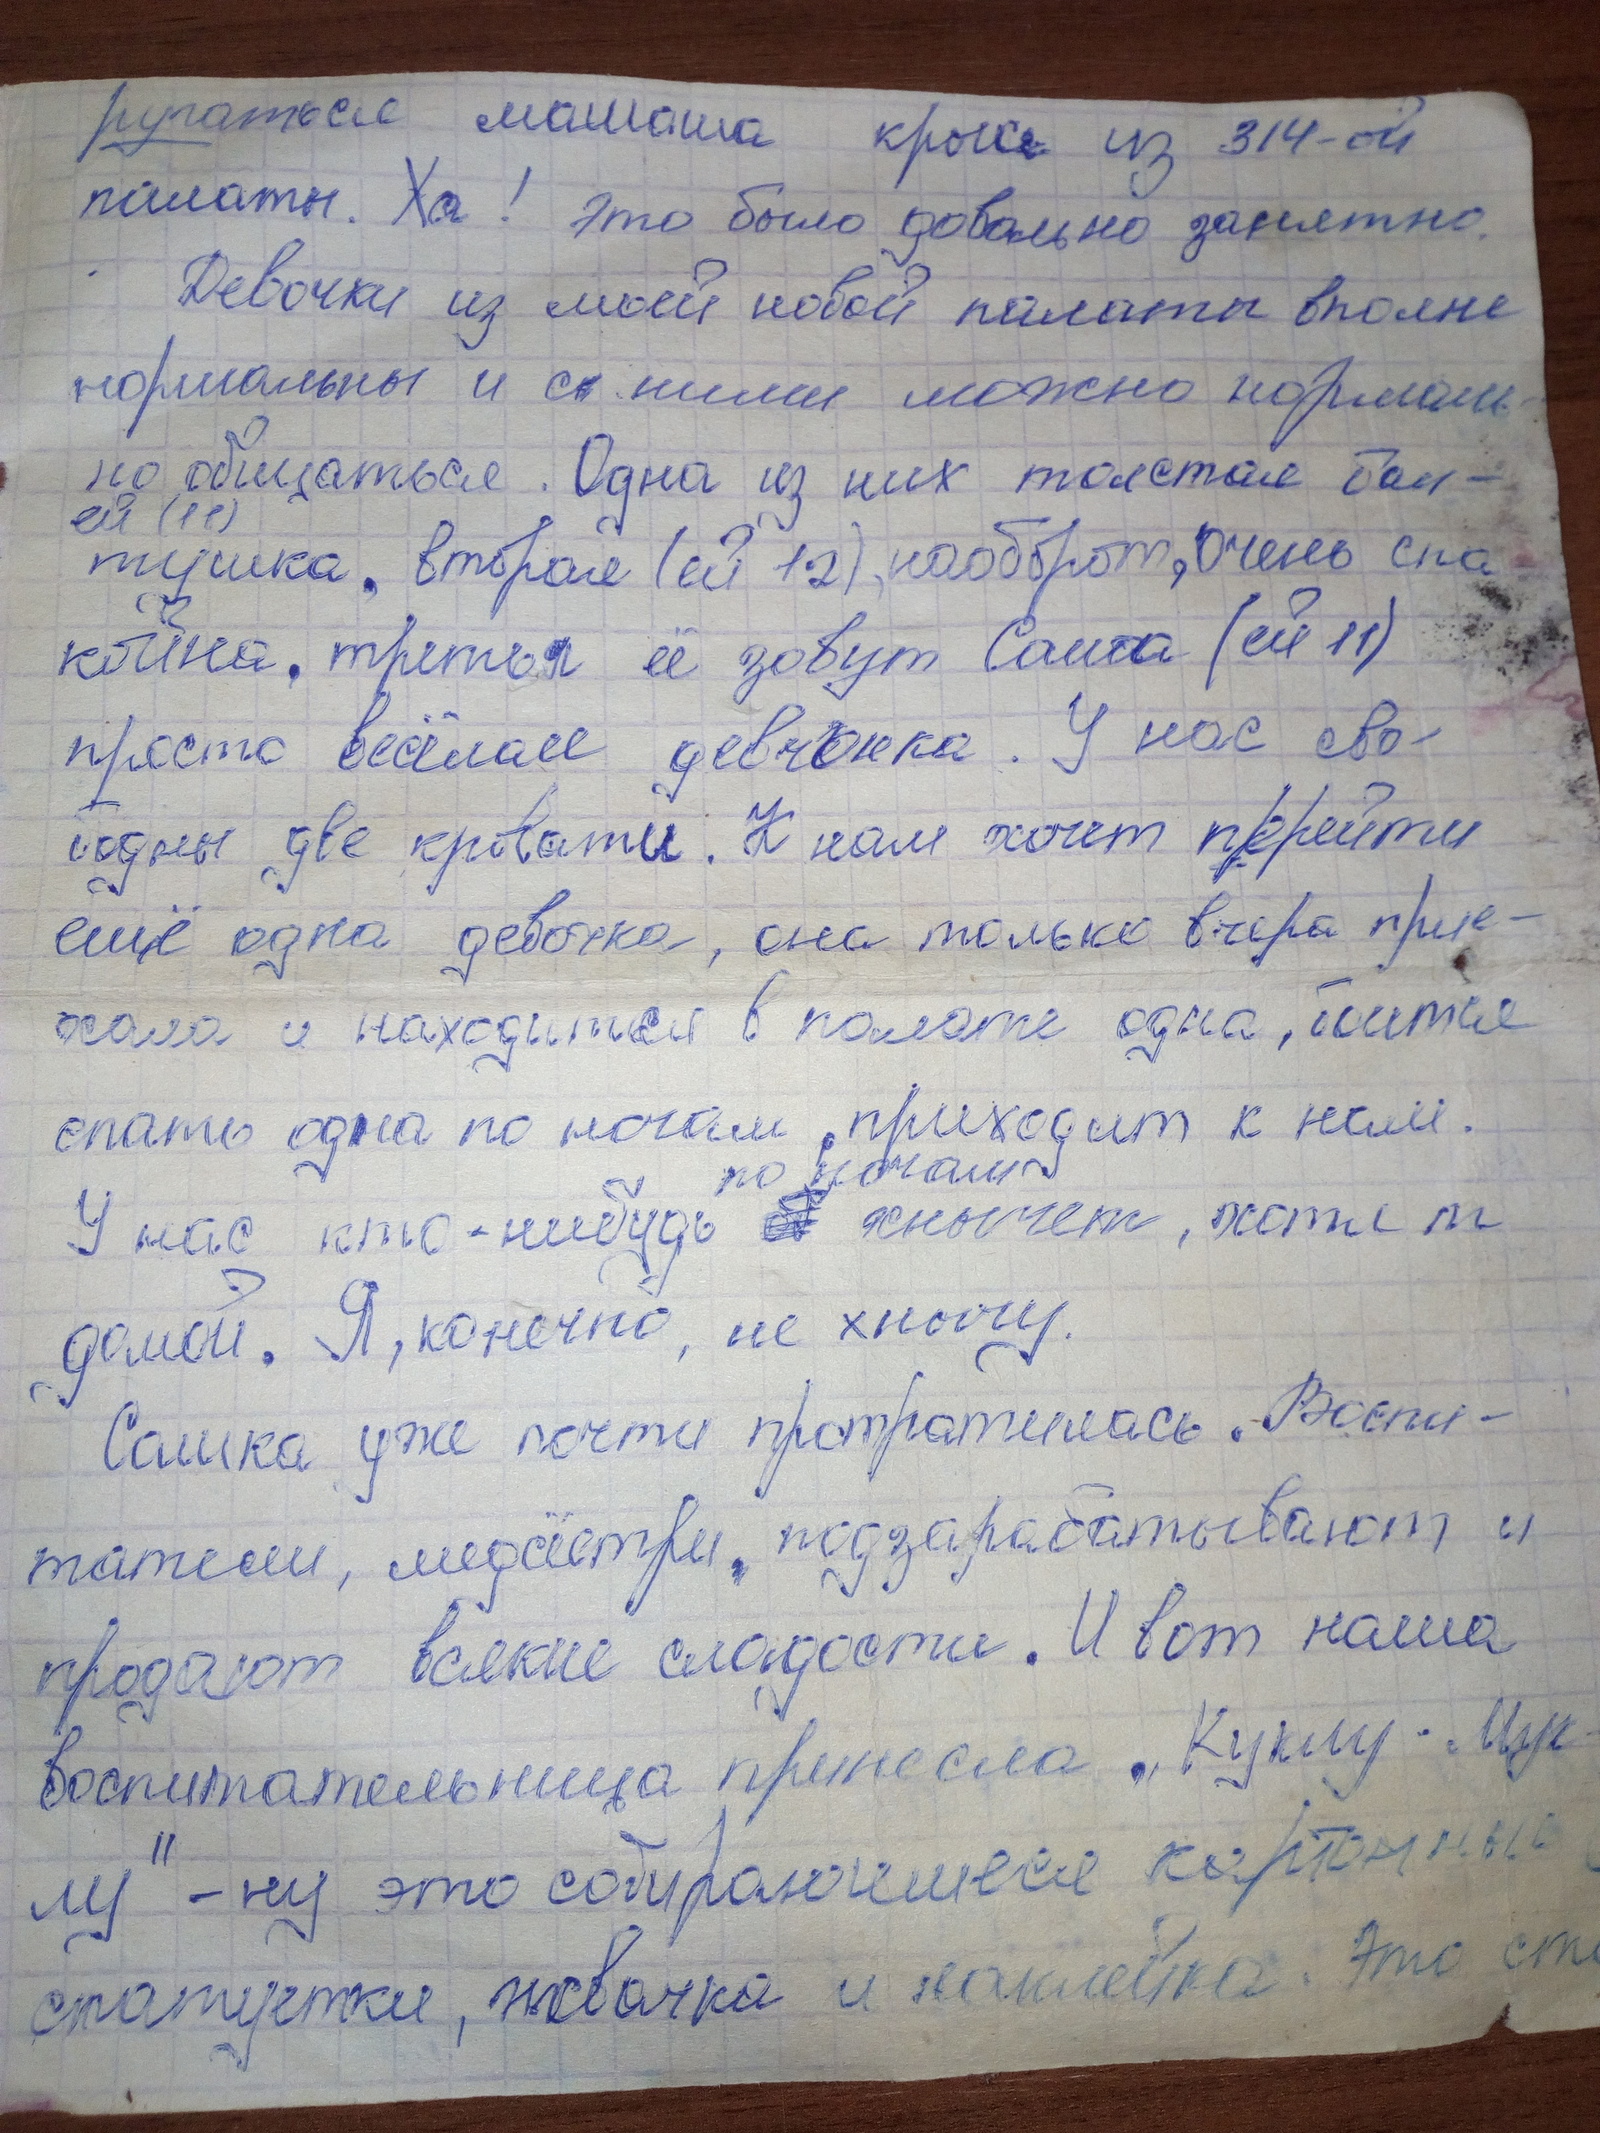 ругаться мамаша крысы из 314-ой
палаты. Ха! Это было довольно занятно.
Девочки из моей новой палаты вполне
нормальны и с ними можно нормаль
но общаться. Одна из них толстая бол-
ей (11)
тушка, вторая (ей 12), наоборот, очень спа
койна, третья её зовут Саша (ей 11)
просто весёлая девчонка. У нас сво-
бодны две кровати. К нам хочет перейти
ещё одна девочка, она только вчера прие-
хала и находиться в палате одна, боится
спать одна по ночам, приходит к нам.
по ночам
У нас кто-нибудь хнычет, хотят
домой. Я, конечно, не хнычу.
Сашка уже почти протратилась. Воспи-
татели, медсёстры, подзарабатывают и
продают всякие сладости. И вот наша
воспитательница принесла „Куклу-Мук-
лу" - ну это собирающиеся картонные
статуетки, жвачка и наклейка. Это